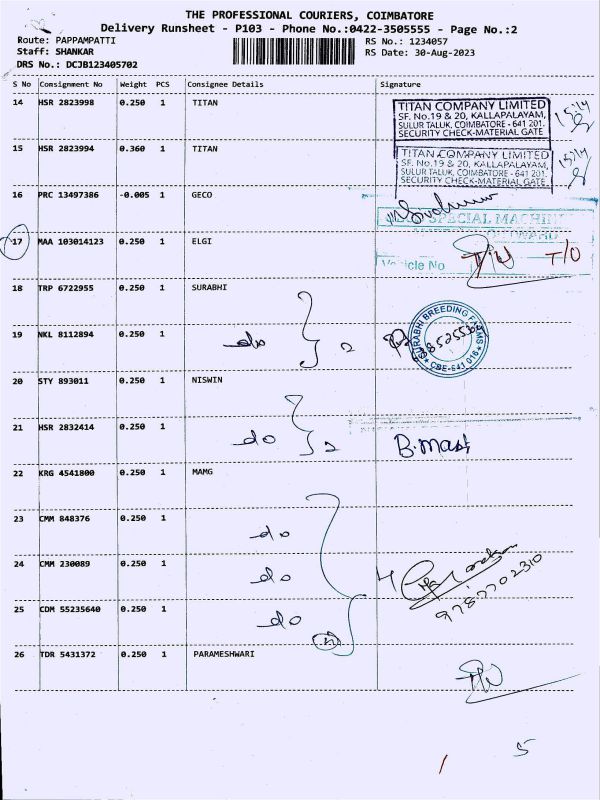 THE PROFESSIONAL COURIERS, COIMBATORE
Delivery Runsheet - P103 - Phone No.:0422-3505555 - Page No.:2
Route: PAPPAMPATTI RS No.: 1234057
Staff: SHANKAR RS Date: 30-Aug-2023
DRS No.: DCJB123405702
S No Consignment No Weight PCS Consignee Details Signature
14 HSR 2823998 0.250 1 TITAN
TITAN COMPANY LIMITED
SF. No.19 & 20, KALLAPALAYAM,
SULUR TALUK, COIMBATORE - 641 201.
SECURITY CHECK-MATERIAL GATE
15 HSR 2823994 0.360 1 TITAN
TITAN COMPANY LIMITED
SF. No.19 & 20, KALLAPALAYAM,
SULUR TALUK, COIMBATORE - 641 201.
SECURITY CHECK-MATERIAL GATE
16 PRC 13497386 -0.005 1 GECO
SPECIAL MACHIN
17 MAA 103014123 0.250 1 ELGI
INWARD
Vehicle No
T/O
18 TRP 6722955 0.250 1 SURABHI
19 NKL 8112894 0.250 1 do 2
SURABHI BREEDING FARMS
CBE-641 016
20 STY 893011 0.250 1 NISWIN
21 HSR 2832414 0.250 1 do 2 B.Mast
22 KRG 4541800 0.250 1 MAMG
23 CMM 848376 0.250 1 do
24 CMM 230089 0.250 1 do 4
9787702310
25 CDM 55235640 0.250 1 do
26 TDR 5431372 0.250 1 PARAMESHWARI
1 5